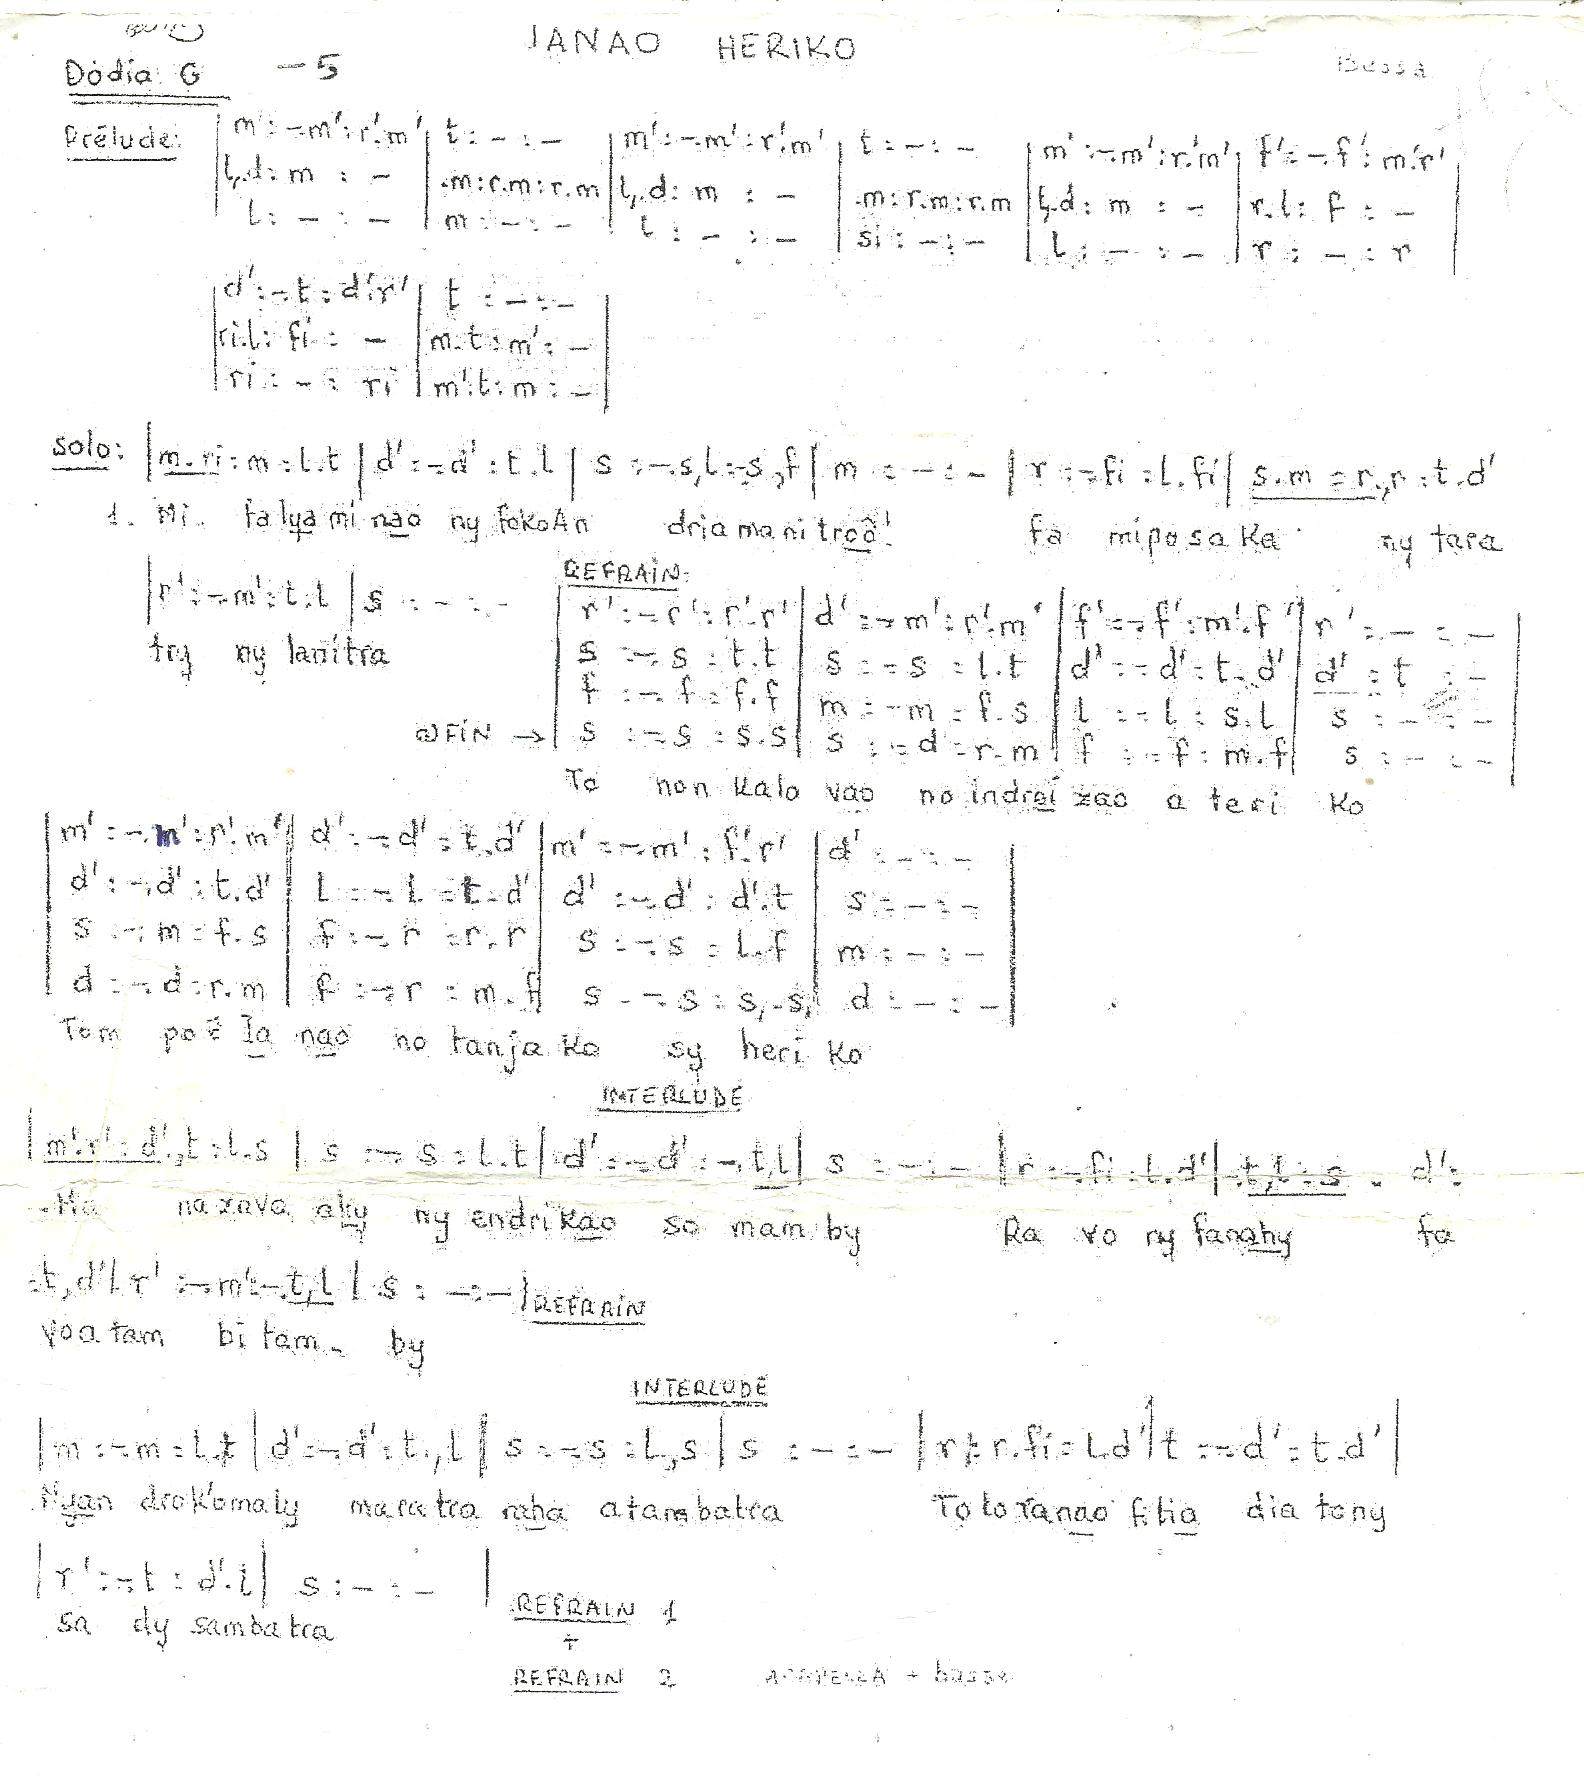 JANAO HERIKO
Dodia G -5
Prélude: | m':-.m':r'.m' | t:-:- | m':-.m':r'.m' | t:-:- | m':-.m':r'.m' | f':-.f':m'.r' |
| l,.d:m:- | .m:r.m:r.m | l,.d:m:- | .m:r.m:r.m | l,.d:m:- | r.l:f:- |
| l:-:- | m:-:- | l:-:- | si:-:- | l:-:- | r:-:r |
| d':-.t:d'.r' | t:-:- |
| ri.l:fi:- | m.t:m':- |
| ri:-:ri | m'.t:m:- |
Solo: | m.ri:m:l.t | d':-.d':t.l | s:-.s,l:-s,f | m:-:- | r:-.fi:l.fi | s.m:r.,r:t.d'
1. Mi. falyaminao ny fokoAn driamanitroô! fa miposaka ny tara
| r':-.m':t.l | s:-:-
try ny lanitra
REFRAIN:
| r':-.r':r'.r' | d':-.m':r'.m' | f':-.f':m'.f' | r':-:- |
| s:-.s:t.t | s:-.s:l.t | d':-.d':t.d' | d':t:- |
| f:-.f:f.f | m:-.m:f.s | l:-.l:s.l | s:-:- |
a)FiN → | s:-.s:s.s | s:-.d:r.m | f:-.f:m.f | s:-:- |
To non kalo vao no indroi zao a teri ko
| m':-.m':r'.m' | d':-.d':t.d' | m':-.m':f'.r' | d':-:- |
| d':-.d':t.d' | l:-.l:t.d' | d':-.d':d'.t | s:-:- |
| s:-.m:f.s | f:-.r:r.r | s:-.s:l.f | m:-:- |
| d:-.d:r.m | f:-.r:m.f | s:-.s:s,.s, | d:-:- |
Tom poê Ia nao no tanja ko sy heri ko
INTERLUDE
| m'.r':d'.,t:l.s | s:-.s:l.t | d':-.d':-.t,l | s:-:- | r:-.fi:l.d' | t,l:s . d':
Ma nazava aky ny endrikao so mam by Ra vo ny fanahy fa
:t,d' | r':-.m':-.t,l | s:-:- | REFRAIN
voa tam bi tam- by
INTERLUDE
| m:-.m:l.t | d':-.d':t.,l | s:-.s:l,s | s:-:- | r:r.fi:l.d' | t:-.d':t.d' |
Nyan drok'omaly maratra raha atambatra Totoranao fitia dia tony
| r':-.t:d'.l | s:-:- |
sa dy sambatra
REFRAIN 1
+
REFRAIN 2 ACAPELLA + basse